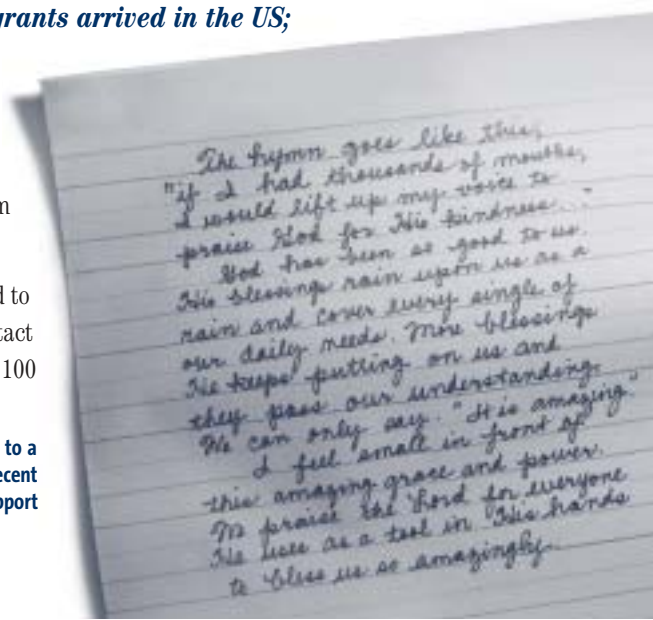 grants arrived in the US;
m
d to
tact
100
to a
ecent
pport
The hymn goes like this,
"if I had thousands of mouths,
I would lift up my voice to
praise God for His kindness..."
God has been so good to us.
His blessings rain upon us as a
rain and cover every single of
our daily needs. More blessings
He keeps putting on us and
they pass our understanding.
We can only say. "It is amazing."
I feel small in front of
this amazing grace and power.
praise the Lord for everyone
He uses as a tool in His hands
to bless us so amazingly.